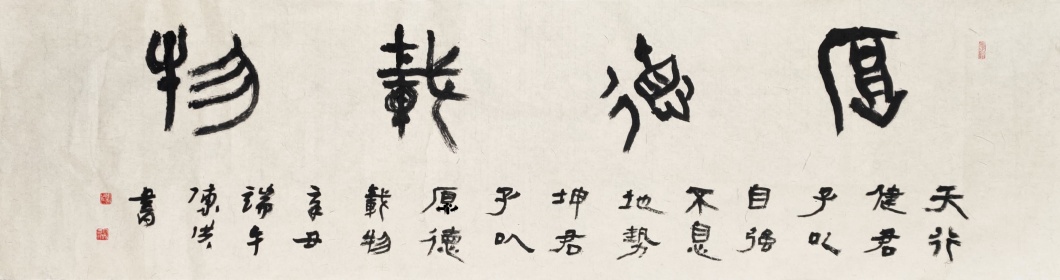 厚德載物
天行
健君
子以
自强
不息
地勢
坤君
子以
厚德
載物
辛丑
端午
陳洪
書